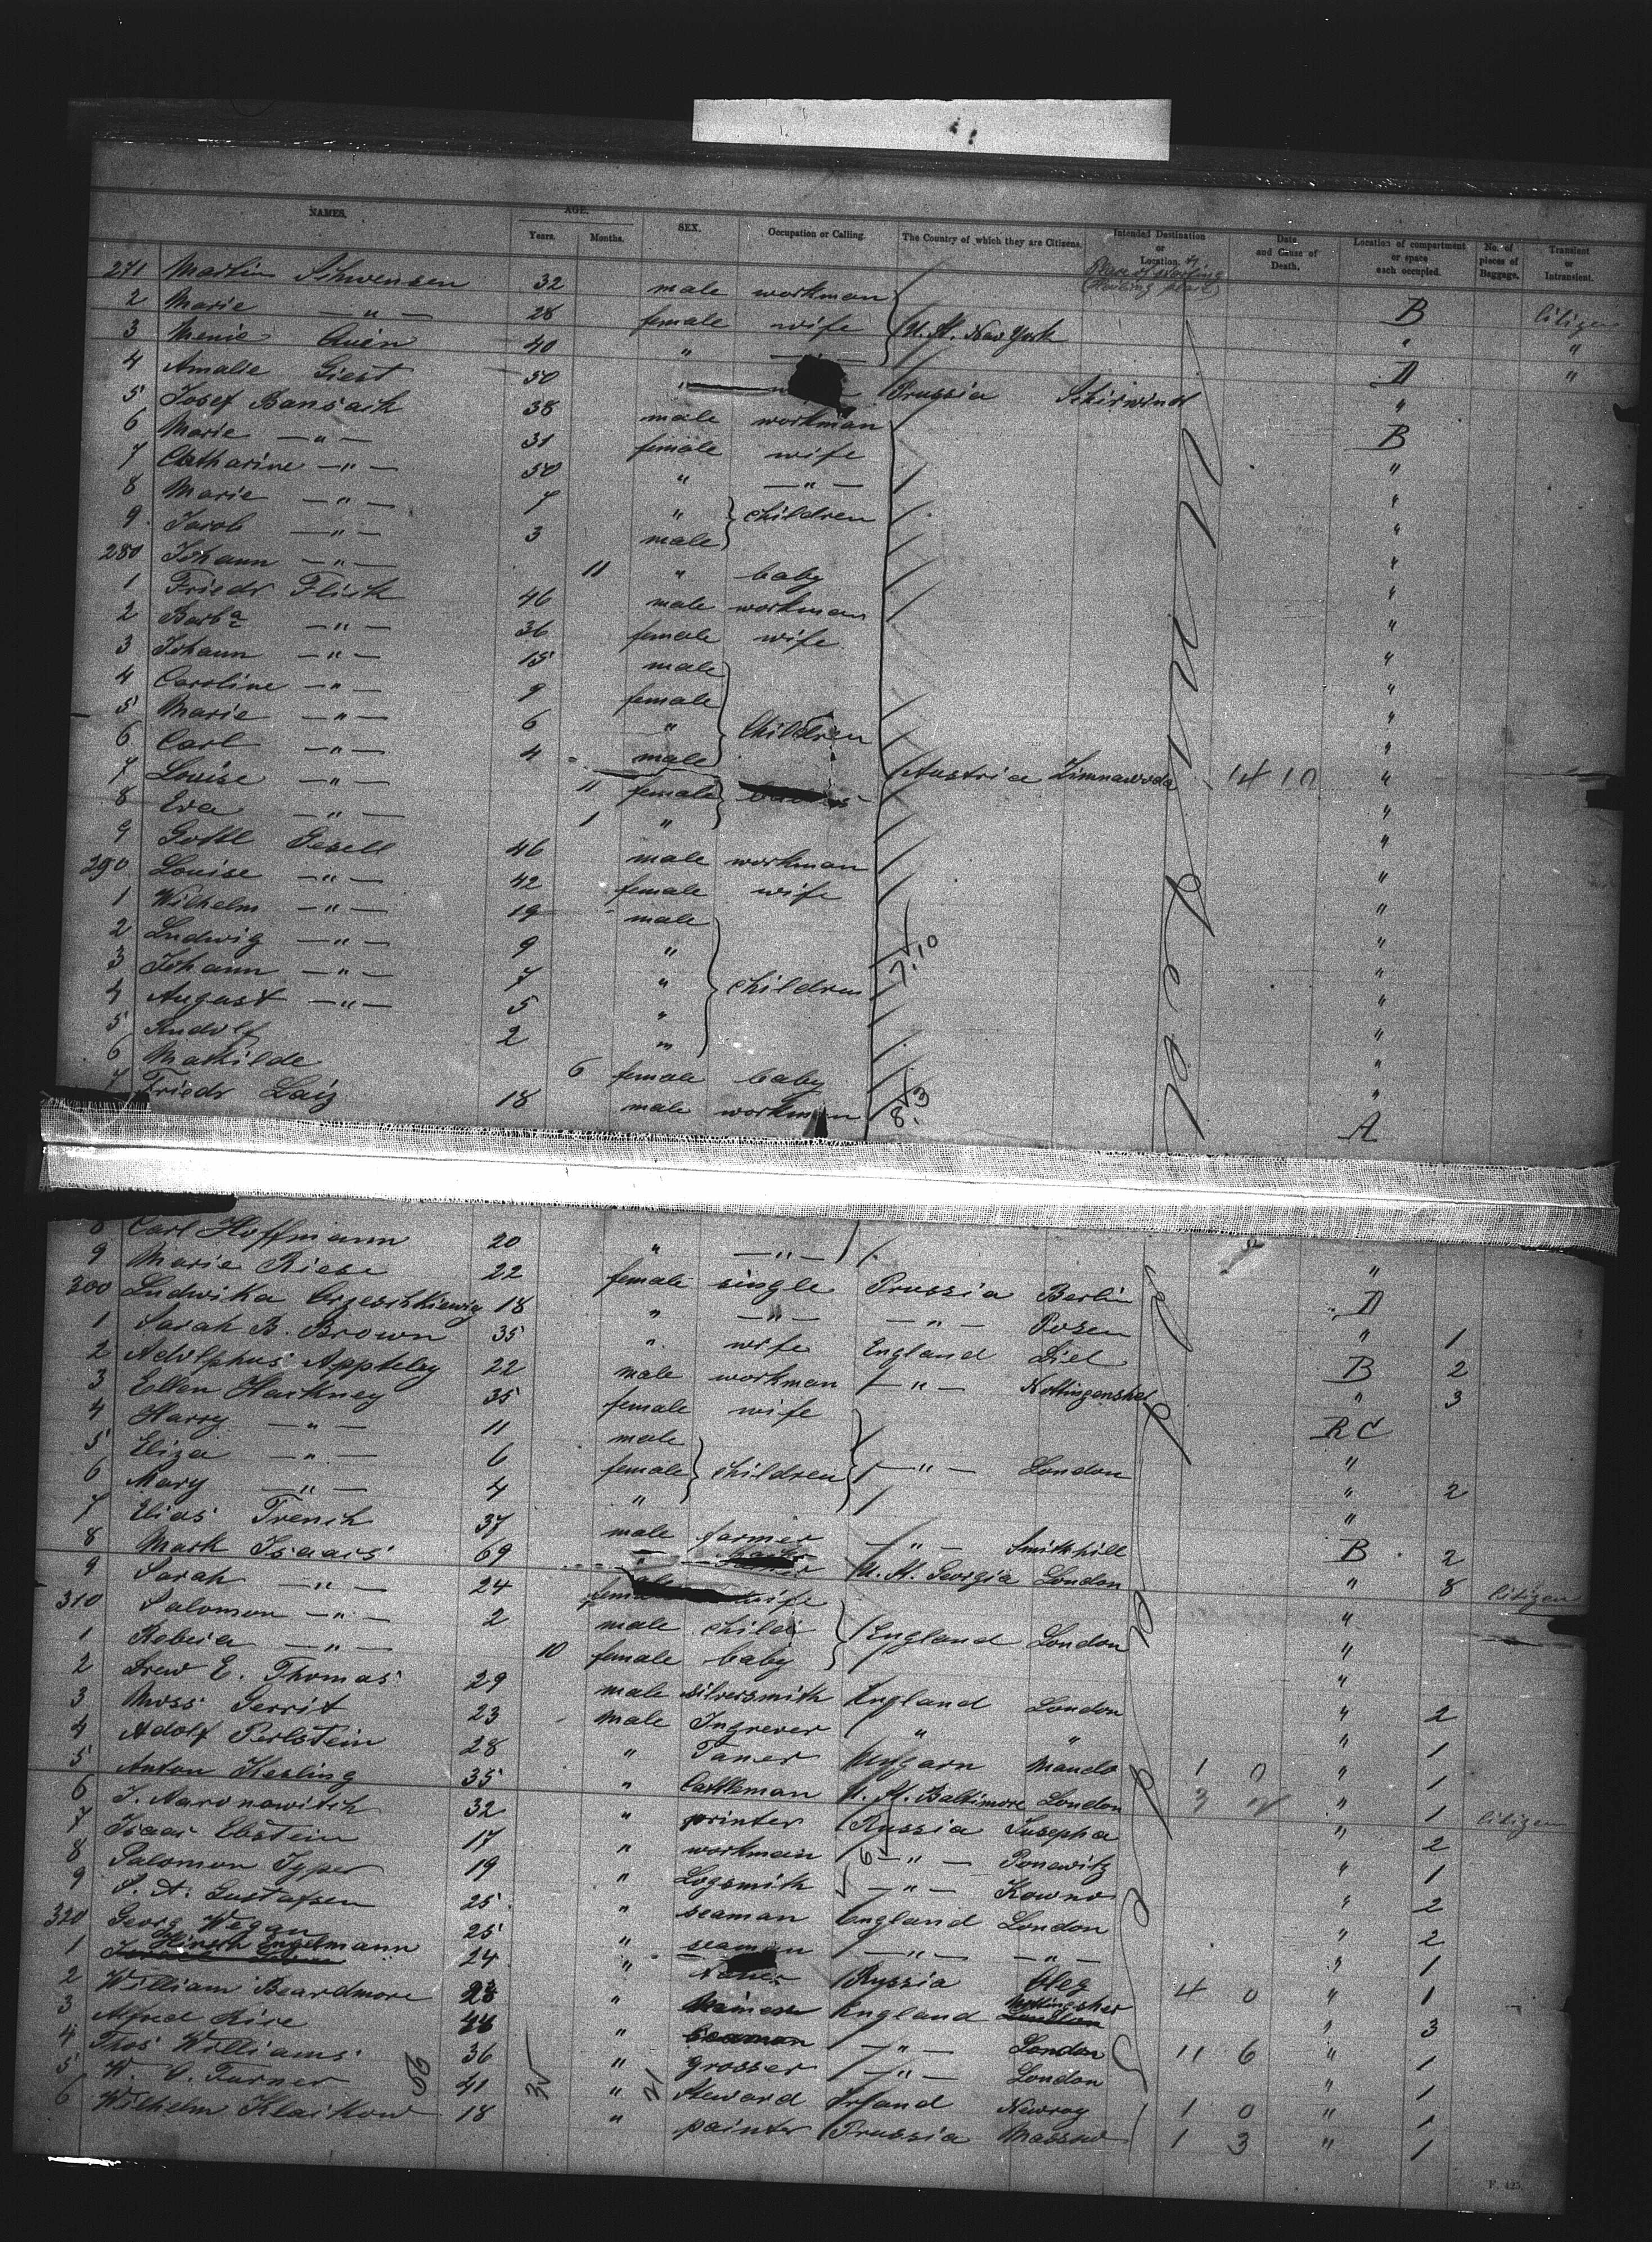 NAMES. AGE. Years. Months. SEX. Occupation or Calling. The Country of which they are Citizens. Intended Destination or Location. Date and Cause of Death. Location of compartment or space each occupied. No. of pieces of Baggage. Transient or Intransient.
Place of starting
271 Martin Schwensen 32 male workman B Citizen
2 Marie —"— 28 female wife U. St. New York " "
3 Menie 40 " —"— D "
4 Amalie Giest 50 " Prussia Schirwind "
5 Josef 38 male workman B
6 Marie —"— 31 female wife "
7 Catharine —"— 50 " —"— "
8 Marie —"— 7 " children "
9 Jacob —"— 3 male "
280 Johann —"— 11 " baby "
1 Friedr Flick 46 male workman "
2 Barba —"— 36 female wife "
3 Johann —"— 15 male "
4 Caroline —"— 9 female "
5 Marie —"— 6 " Children "
6 Carl —"— 4 male "
7 Louise —"— 11 female Austria Zimnawoda 14 10 "
8 Eva —"— 1 " "
9 Gottl Gesell 46 male workman "
290 Louise —"— 42 female wife "
1 Wilhelm —"— 19 male "
2 Ludwig —"— 9 " "
3 Johann —"— 7 " children 7.10 "
4 August —"— 5 " "
5 Rudolf 2 " "
6 Mathilde 6 female baby "
7 Friedr Laiz 18 male workman 8.3 A
8 Carl Hoffmann 20 " —"— "
9 Marie Riese 22 female single Prussia Berlin D
300 Ludwika 18 " —"— —"— Posen " 1
1 Sarah B. Brown 35 " wife England B 2
2 Adolphus Appleby 22 male workman —"— " 3
3 Ellen Hackney 35 female wife RC
4 Harry —"— 11 male "
5 Eliza —"— 6 female children —"— London " 2
6 Mary —"— 4 " "
7 Elias French 37 male farmer —"— Smithhill B 2
8 Mark Isaacs 69 " U. St. Georgia London " 8 Citizen
9 Sarah —"— 24 female wife "
310 Salomon —"— 2 male child England London "
1 Rebeca —"— 10 female baby "
2 Drew E. Thomas 29 male silversmith England London " 2
3 Moss Gerrit 23 male Ingrever " " " 1
4 Adolf Perlstein 28 " Taner Ungarn Mando 1 0 " 1
5 Anton Kesling 35 " Cattleman U. St. Baltimore London 3 " 1 Citizen
6 J. Aaronowitch 32 " printer Russia " 2
7 Isaac Ebstein 17 " workman 6 —"— Ponewitz " 1
8 Salomon Typer 19 " Logsmith —"— Kowno " 2
9 S. A. Gustafsen 25 " seaman England London " 2
320 Georg Wegan 25 " seaman —"— —"— " 1
1 Hirsch Engelmann 24 " Russia 4 0 " 1
2 William Beardmore 23 " England " 3
3 Alfred Rice 44 " —"— London 11 6 " 1
4 Thos Williams 36 " grosser —"— London " 1
5 W. O. Turner 41 " Steward Irland Newray 1 0 " 1
6 Wilhelm Klaikow 18 " painter Prussia Massow 1 3 " 1
56 35 21
F. 425.